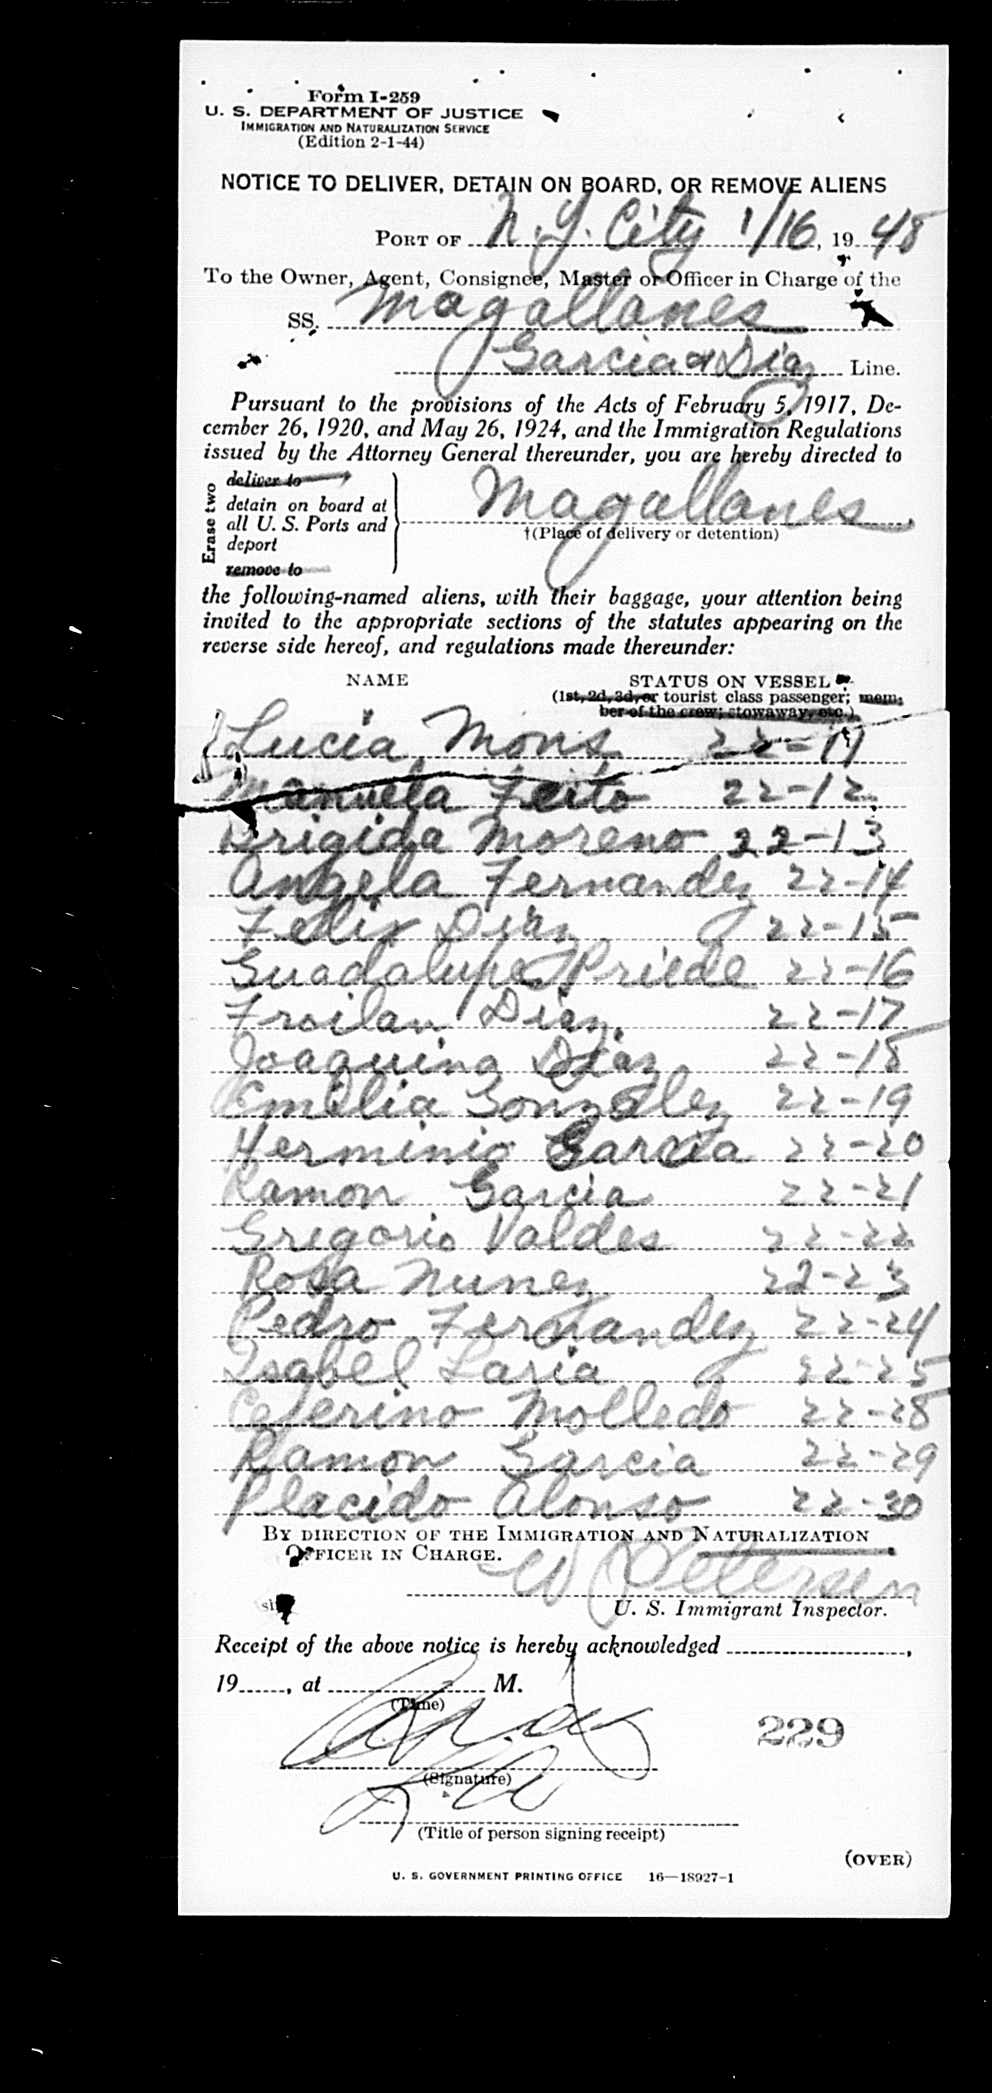 Form I-259
U. S. DEPARTMENT OF JUSTICE
IMMIGRATION AND NATURALIZATION SERVICE
(Edition 2-1-44)
NOTICE TO DELIVER, DETAIN ON BOARD, OR REMOVE ALIENS
PORT OF N.Y. City 1/16, 1948
To the Owner, Agent, Consignee, Master or Officer in Charge of the
SS. Magallanes
Garcia & Diaz Line.
Pursuant to the provisions of the Acts of February 5, 1917, De-
cember 26, 1920, and May 26, 1924, and the Immigration Regulations
issued by the Attorney General thereunder, you are hereby directed to
Erase two
deliver to
detain on board at
all U. S. Ports and
deport
remove to
Magallanes
†(Place of delivery or detention)
the following-named aliens, with their baggage, your attention being
invited to the appropriate sections of the statutes appearing on the
reverse side hereof, and regulations made thereunder:
NAME STATUS ON VESSEL
(1st, 2d, 3d, or tourist class passenger; mem-
ber of the crew; stowaway, etc.)
Lucia Mons 22-11
Manuela Feito 22-12
Brigida Moreno 22-13
Angela Fernandez 22-14
Felix Diaz 22-15
Guadalupe Priede 22-16
Froilan Diaz 22-17
Joaquina Diaz 22-18
Emelia Gonzalez 22-19
Herminio Garcia 22-20
Ramon Garcia 22-21
Gregorio Valdes 22-22
Rosa Nunez 22-23
Pedro Fernandez 22-24
Isabel Laria 22-25
Ceferino Molledo 22-28
Ramon Garcia 22-29
Placido Alonso 22-30
BY DIRECTION OF THE IMMIGRATION AND NATURALIZATION
OFFICER IN CHARGE.
W Petersen
U. S. Immigrant Inspector.
Receipt of the above notice is hereby acknowledged ,
19 , at M.
(Time)
229
(Signature)
(Title of person signing receipt)
(OVER)
U. S. GOVERNMENT PRINTING OFFICE 16—18927-1